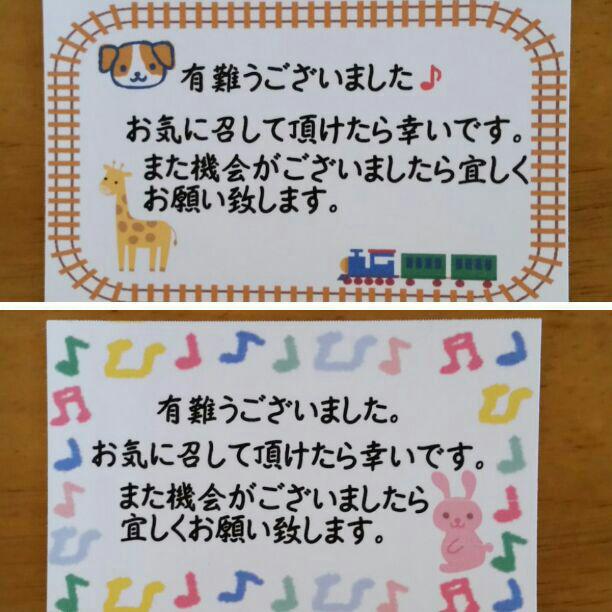 有難うございました♪
お気に召して頂けたら幸いです。
また機会がございましたら宜しく
お願い致します。
有難うございました。
お気に召して頂けたら幸いです。
また機会がございましたら
宜しくお願い致します。